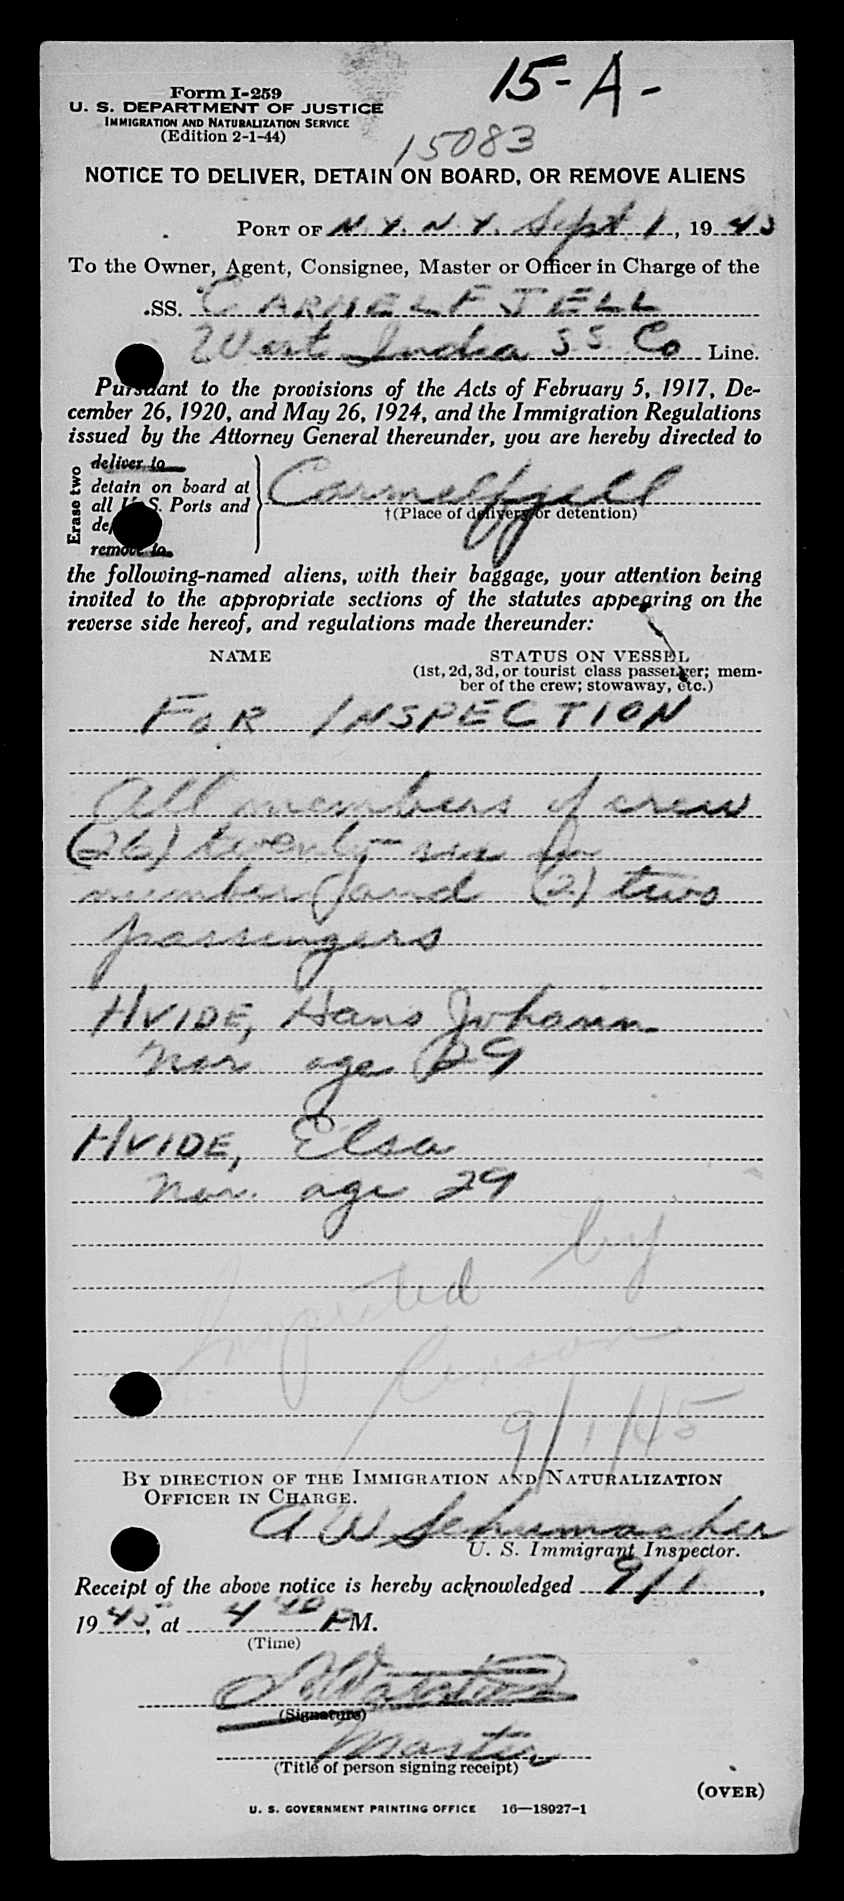 15-A-
Form I-259
U. S. DEPARTMENT OF JUSTICE
IMMIGRATION AND NATURALIZATION SERVICE
(Edition 2-1-44)
15083
NOTICE TO DELIVER, DETAIN ON BOARD, OR REMOVE ALIENS
PORT OF N.Y. N.Y. Sept 1, 1945
To the Owner, Agent, Consignee, Master or Officer in Charge of the
SS. CARMELFJELL
West India SS. Co Line.
Pursuant to the provisions of the Acts of February 5, 1917, De-
cember 26, 1920, and May 26, 1924, and the Immigration Regulations
issued by the Attorney General thereunder, you are hereby directed to
Erase two
deliver to
detain on board at
all U.S. Ports and
remove to
Carmelfjell
†(Place of delivery or detention)
the following-named aliens, with their baggage, your attention being
invited to the appropriate sections of the statutes appearing on the
reverse side hereof, and regulations made thereunder:
NAME STATUS ON VESSEL
(1st, 2d, 3d, or tourist class passenger; mem-
ber of the crew; stowaway, etc.)
FOR INSPECTION
All members of crew
(26) twenty-six in
number and (2) two
passengers
HVIDE, Hans Johann
Nor. age 29
HVIDE, Elsa
Nor. age 29
Inspected by
9/1/45
BY DIRECTION OF THE IMMIGRATION AND NATURALIZATION
OFFICER IN CHARGE.
A W Schumacher
U. S. Immigrant Inspector.
Receipt of the above notice is hereby acknowledged 9/1,
1945, at 4 40 PM.
(Time)
(Signature)
Master
(Title of person signing receipt)
(OVER)
U. S. GOVERNMENT PRINTING OFFICE 16—18927-1